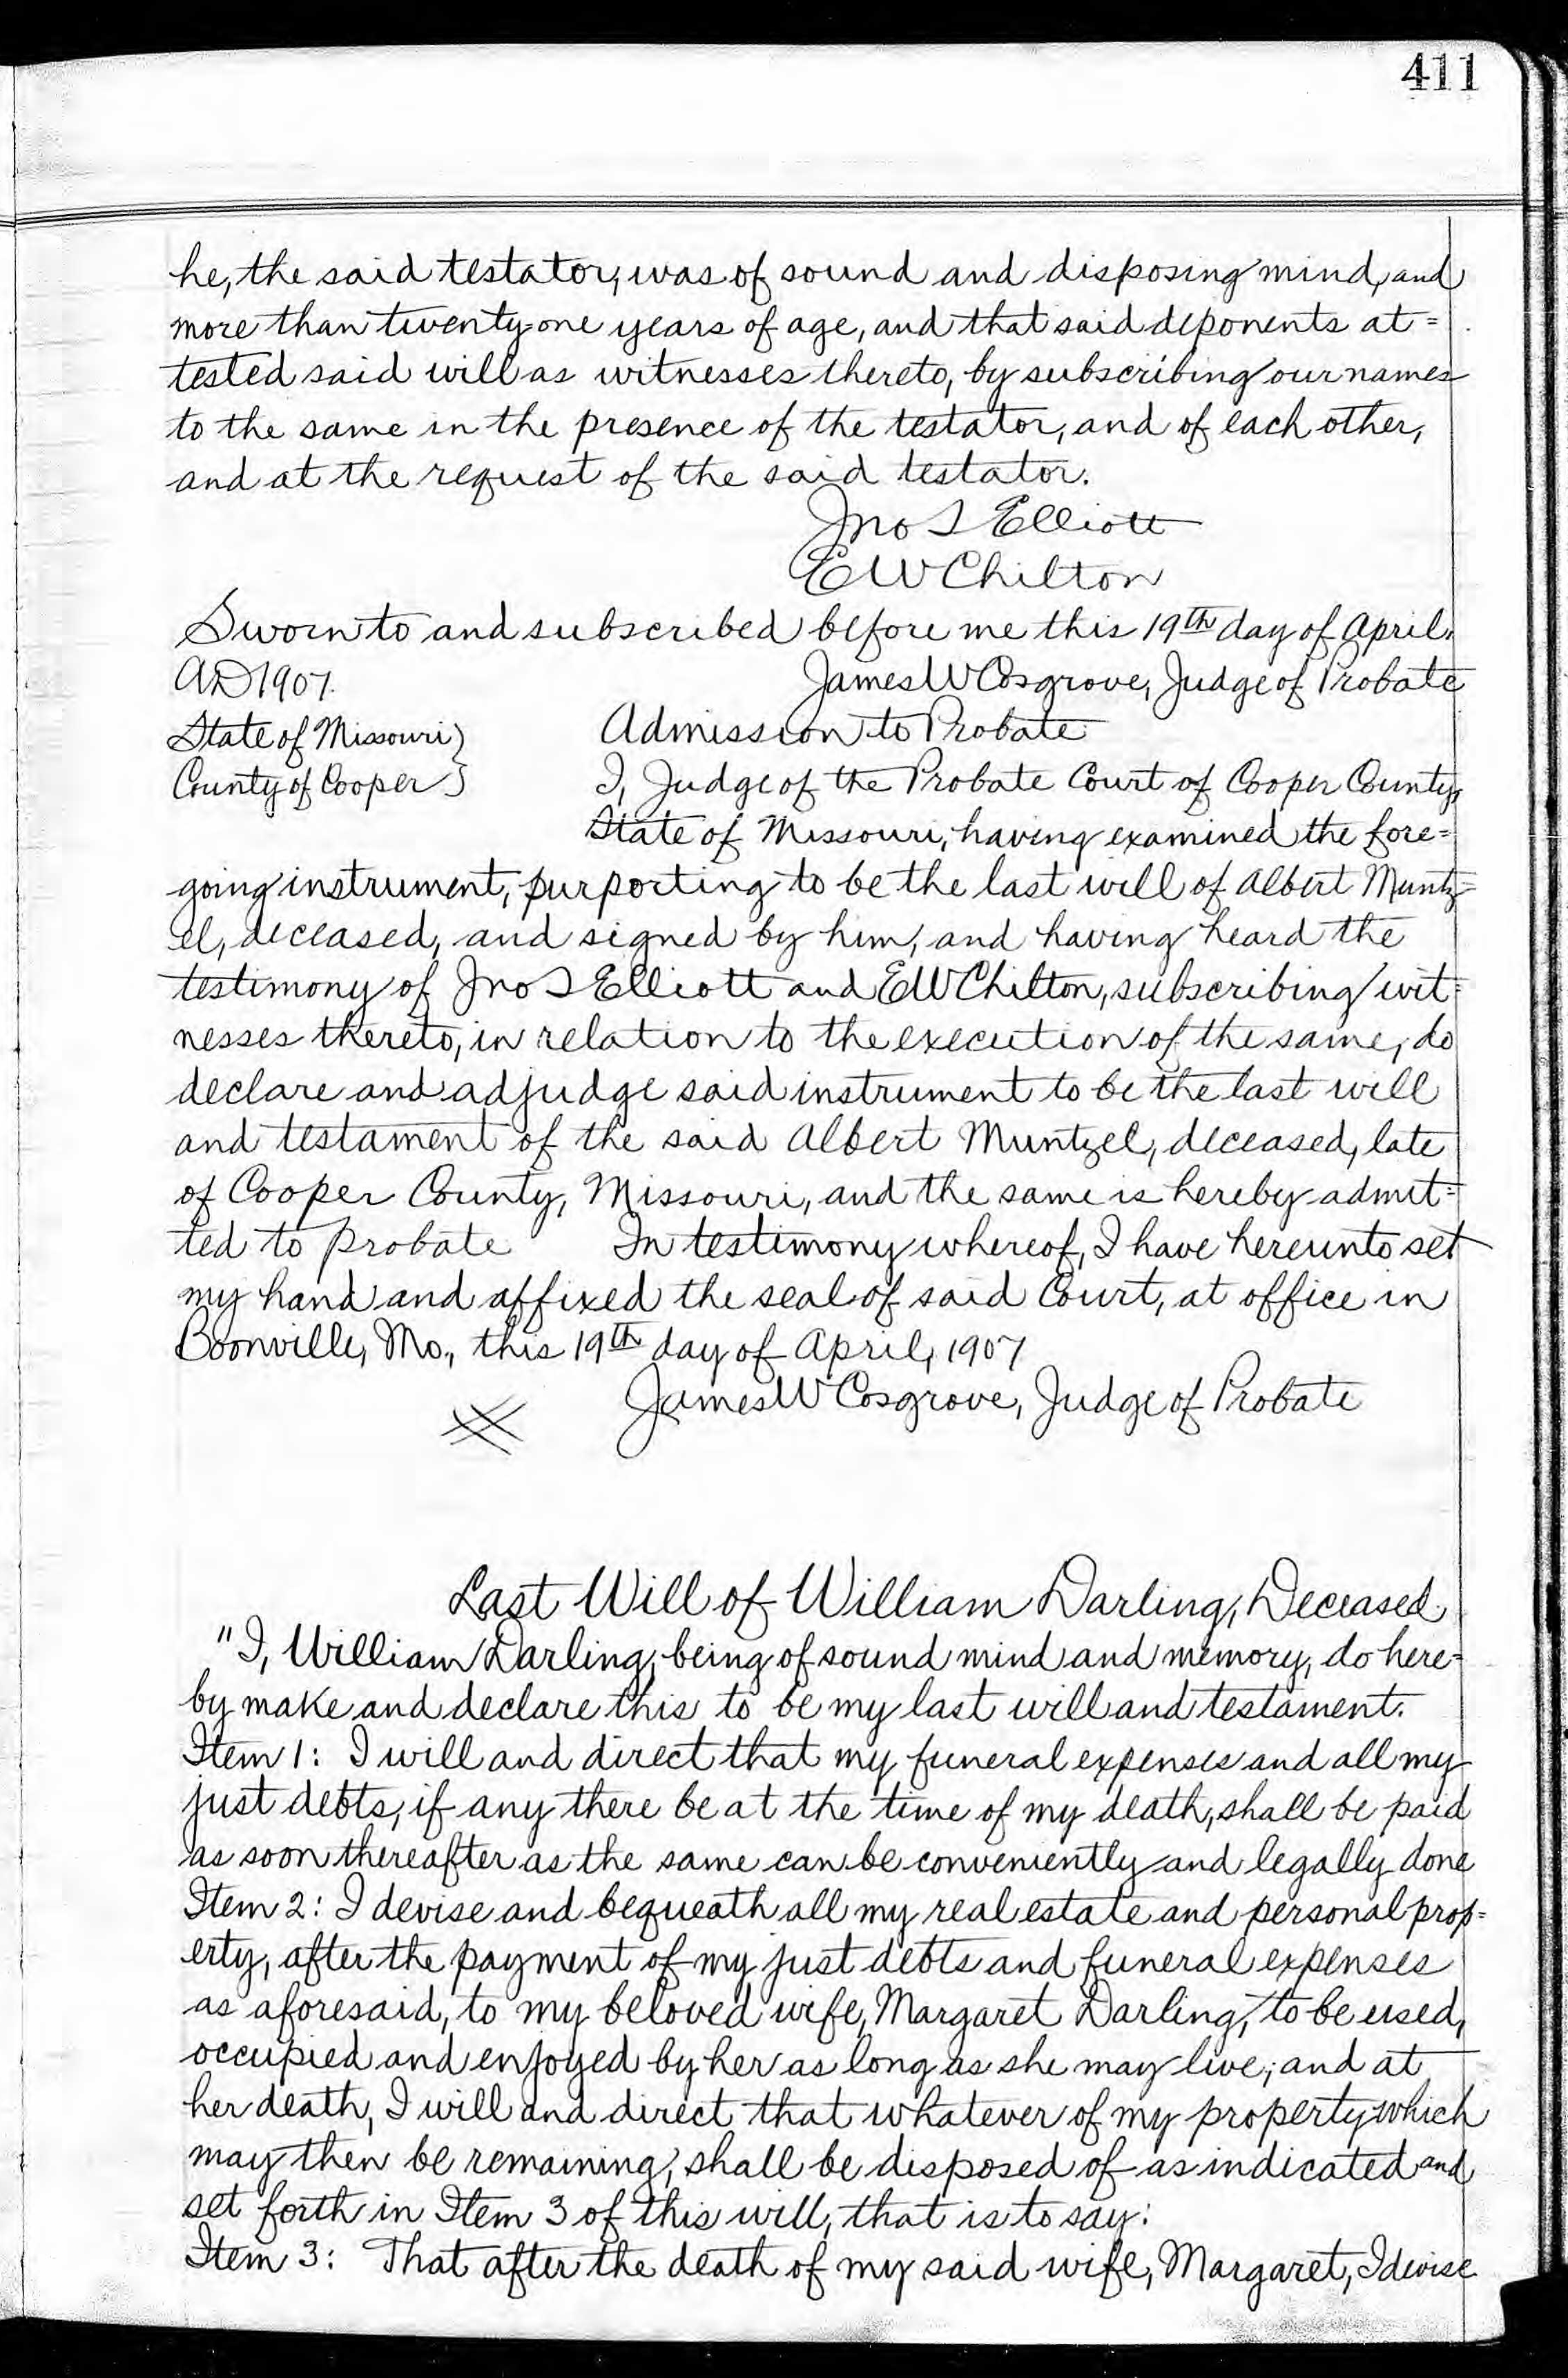 411
he, the said testator, was of sound and disposing mind, and
more than twenty one years of age, and that said deponents at=
tested said will as witnesses thereto, by subscribing our names
to the same in the presence of the testator, and of each other,
and at the request of the said testator.
Jno S Elliott
E W Chilton
Sworn to and subscribed before me this 19th day of April,
AD 1907. James W Cosgrove, Judge of Probate
State of Missouri} Admission to Probate
County of Cooper } I, Judge of the Probate Court of Cooper County,
State of Missouri, having examined the fore=
going instrument, purporting to be the last will of Albert Muntz=
el, deceased, and signed by him, and having heard the
testimony of Jno S Elliott and E W Chilton, subscribing wit=
nesses thereto, in relation to the execution of the same, do
declare and adjudge said instrument to be the last will
and testament of the said Albert Muntzel, deceased, late
of Cooper County, Missouri, and the same is hereby admit=
ted to probate In testimony whereof, I have hereunto set
my hand and affixed the seal of said Court, at office in
Boonville, Mo., this 19th day of April, 1907
James W Cosgrove, Judge of Probate
Last Will of William Darling, Deceased.
"I, William Darling, being of sound mind and memory, do here=
by make and declare this to be my last will and testament.
Item 1: I will and direct that my funeral expenses and all my
just debts, if any there be at the time of my death, shall be paid
as soon thereafter as the same can be conveniently and legally done
Item 2: I devise and bequeath all my real estate and personal prop=
erty, after the payment of my just debts and funeral expenses
as aforesaid, to my beloved wife, Margaret Darling, to be used,
occupied and enjoyed by her as long as she may live; and at
her death, I will and direct that whatever of my property which
may then be remaining, shall be disposed of as indicated and
set forth in Item 3 of this will, that is to say:
Item 3: That after the death of my said wife, Margaret, I devise